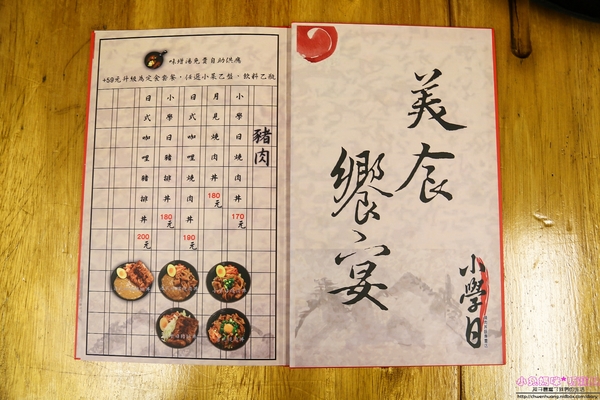 味增湯免費自助供應
+59元升級為定食套餐，任選小菜乙盤。飲料乙瓶
豬肉
小學日燒肉丼
170元
月見燒肉丼
180元
日式咖哩燒肉丼
190元
小學日豬排丼
180元
日式咖哩豬排丼
200元
美食
饗宴
小學日
http://chuenhuang.nidbox.com/diary